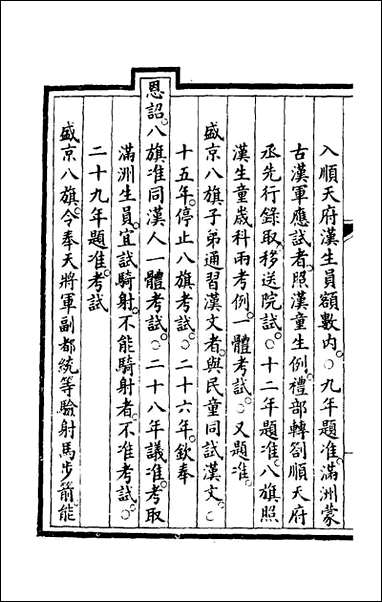 入順天府漢生員額數內。○九年題准。滿洲蒙
古漢軍應試者。照漢童生例。禮部轉劄順天府
丞先行錄取。移送院試。○十二年題准。八旗照
漢生童歲科兩考例。一體考試。○又題准。
盛京八旗子弟通習漢文者。與民童同試漢文。○
十五年。停止八旗考試。○二十六年。欽奉
恩詔。八旗准同漢人一體考試。○二十八年議准。考取
滿洲生員。宜試騎射。不能騎射者。不准考試。○
二十九年題准。考試
盛京八旗。令奉天將軍副都統等驗射馬步箭能